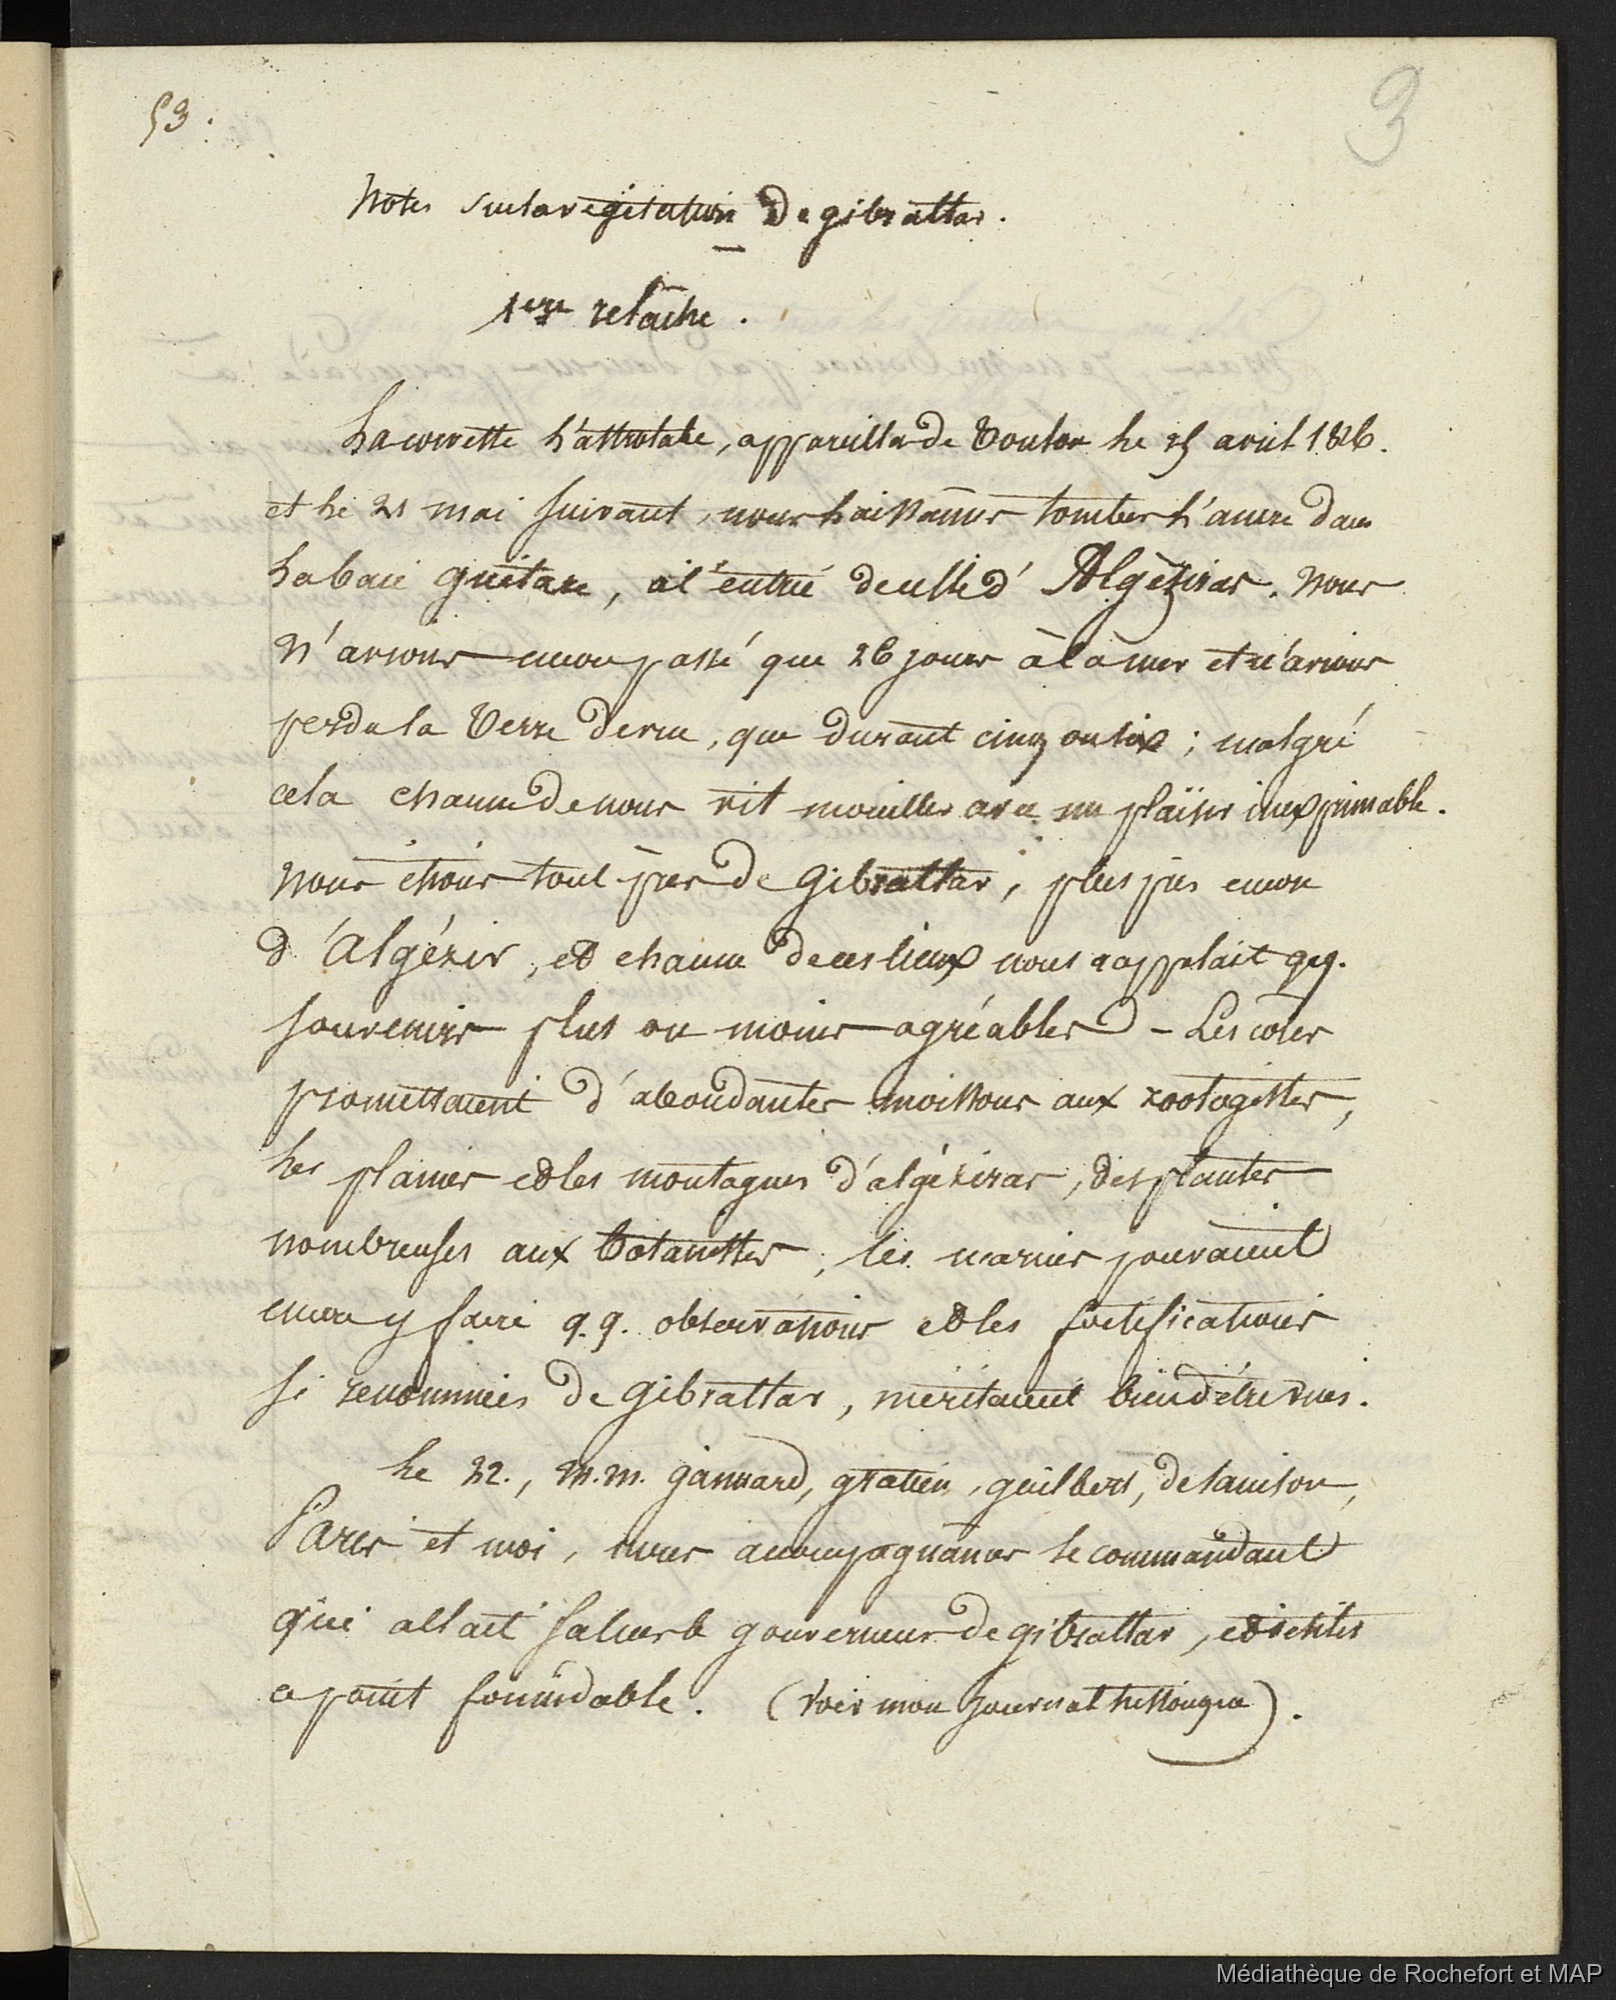 53.
3
Notes sur la végétation de gibraltar.
1ere relâche.
La corvette l'astrolabe, appareilla de Toulon le 25 avril 1826.
et le 21 mai suivant, nous laissâmes tomber l'ancre dans
la baie guétare, à l'entrée de celle d'Algèziras. Nous
n'avions encore passé que 26 jours à la mer et n'avions
perdu la terre de vue, que durant cinq ou six ; malgré
cela chacun de nous vit mouiller avec un plaisir inexprimable.
Nous étions tout près de Gibraltar, plus près encore
d'Algézir, et chacun de ces lieux nous rappelait qq.
souvenirs plus ou moins agréables - Les côtes
promettaient d'abondantes moissons aux zoologistes,
les plaines et les montagnes d'algéziras, des plantes
nombreuses aux botanistes ; les marins pouvaient
encore y faire q.q. observations et les fortifications
si renommées de gibraltar, méritaient bien d'être vues.
Le 22., M.M. gaimard, gratien, guilbert, de sainson,
Paris et moi, nous accompagnâmes le commandant
qui allait saluer le gouverneur de gibraltar, et visiter
ce point formidable. (voir mon journal
Médiathèque de Rochefort et MAP